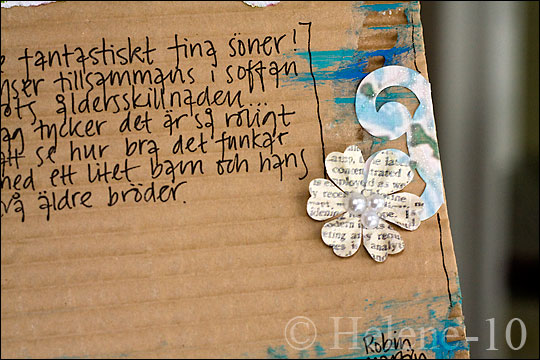 e fantastiskt fina söner!
nser tillsammans i soffan
ots åldersskillnaden..
ag tycker det är så roligt
att se hur bra det funkar
med ett litet barn och hans
vå äldre bröder.
concentrated
is employed as we
Robin
© Helene-10